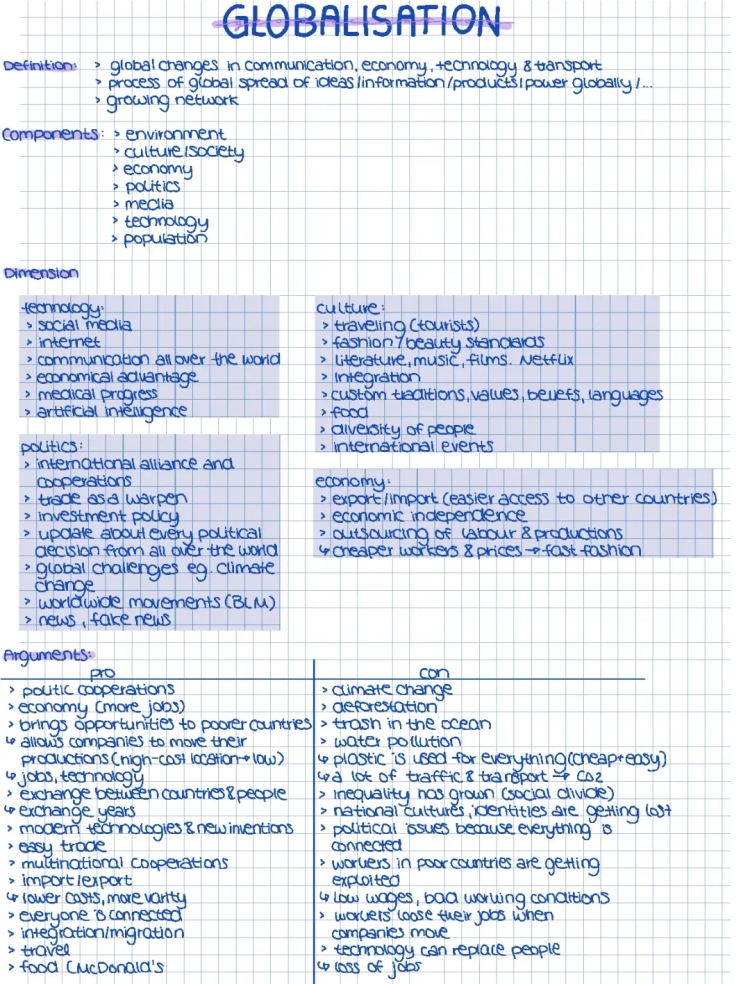 GLOBALISATION
Definition: > global changes in communication, economy, technology & transport
> process of global spread of ideas/information/products/power globally/...
> growing network
Components: > environment
> culture/society
> economy
> politics
> media
> technology
> population
Dimension
technology:
> social media
> internet
> communication all over the world
> economical advantage
> medical progress
> artificial intelligence
politics:
> international alliance and
cooperations
> trade as a warpen
> investment policy
> update about every political
decision from all over the world
> global challenges eg. climate
change
> worldwide movements (BLM)
> news, fake news
culture:
> traveling (tourists)
> fashion/beauty standards
> literature, music, films. Netflix
> integration
> custom traditions, values, beliefs, languages
> food
> diversity of people
> international events
economy:
> export/import (easier access to other countries)
> economic independence
> outsourcing of labour & productions
↳ cheaper workers & prices → fast fashion
Arguments:
pro
> politic cooperations
> economy (more jobs)
> brings opportunities to poorer countries
↳ allows companies to move their
productions (high-cost location → low)
↳ jobs, technology
> exchange between countries & people
↳ exchange years
> modern technologies & new inventions
> easy trade
> multinational cooperations
> import/export
↳ lower costs, more varity
> everyone is connected
> integration/migration
> travel
> food (McDonald's
con
> climate change
> deforestation
> trash in the ocean
> water pollution
↳ plastic is used for everything (cheap + easy)
↳ a lot of traffic & transport → CO2
> inequality has grown (social divide)
> national cultures, identities are getting lost
> political issues because everything is
connected
> workers in poor countries are getting
exploited
↳ low wages, bad working conditions
> workers loose their jobs when
companies move
> technology can replace people
↳ loss of jobs